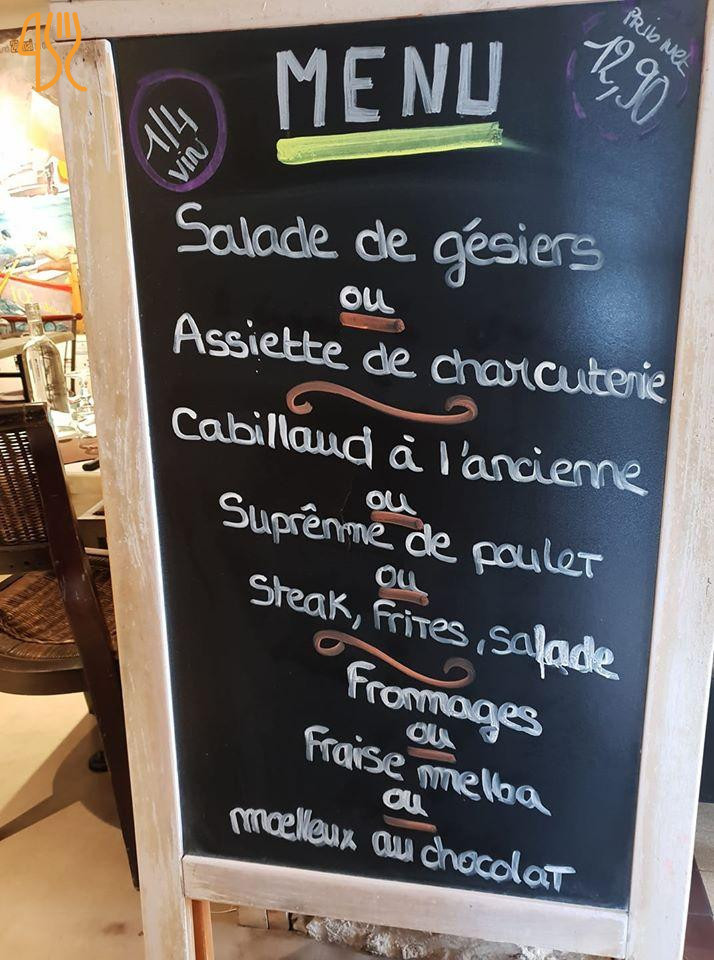 MENU
Prix net
12,90
1/4
vin
Salade de gésiers
ou
Assiette de charcuterie
Cabillaud à l'ancienne
ou
Suprême de poulet
ou
Steak, frites, salade
Frommages
ou
Fraise melba
ou
moelleux au chocolat